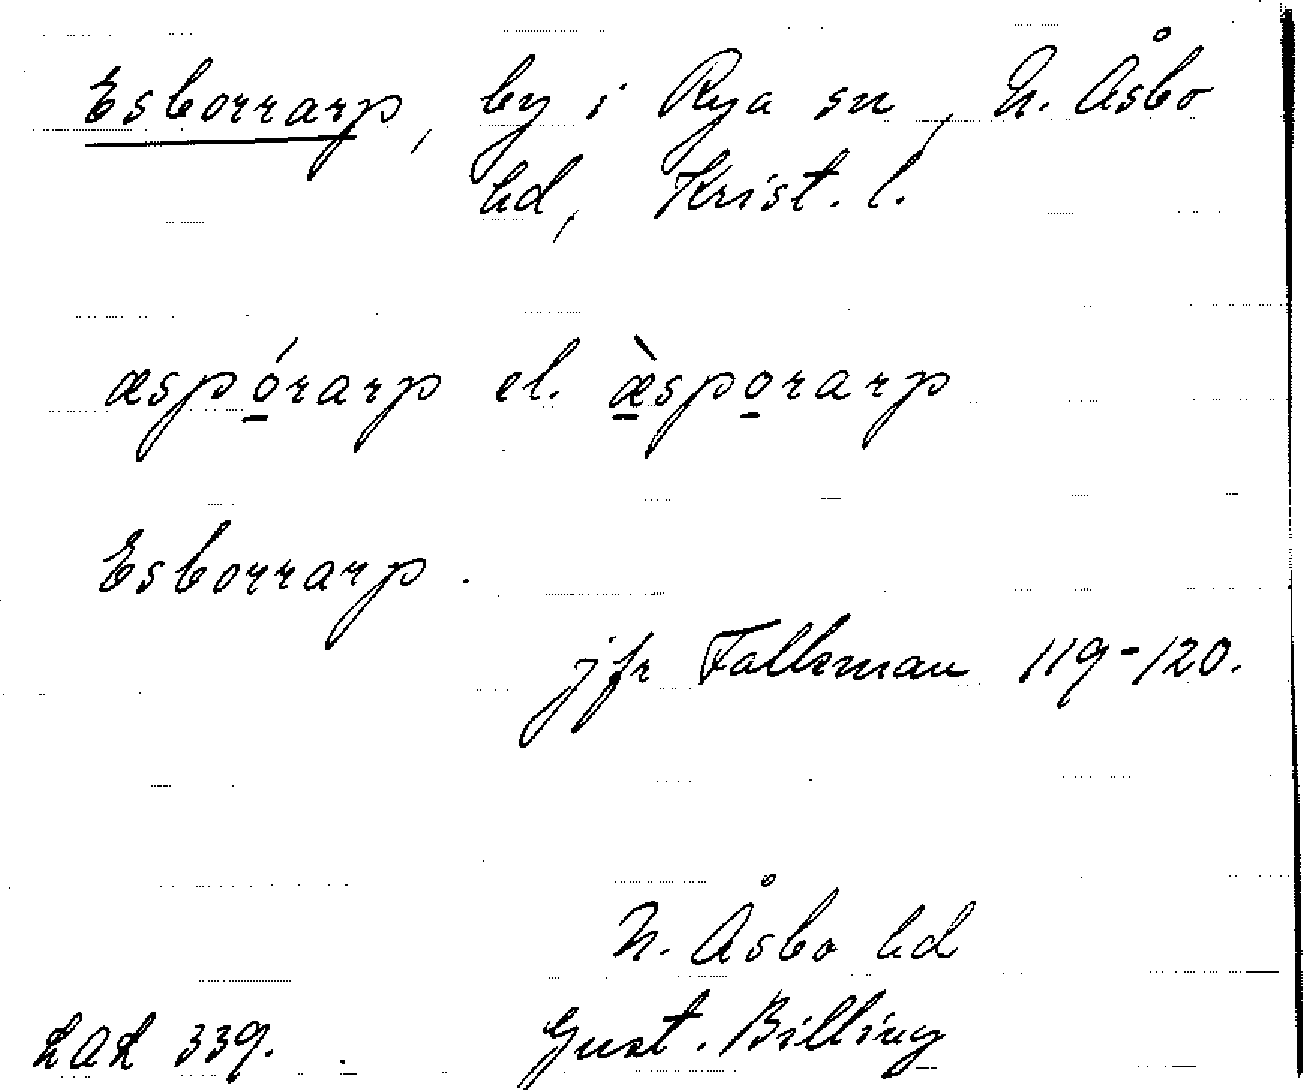 Esborrarp, by i Rya sn, N. Åsbo
hd, Krist. l.
æspó̲rarp el. æ̲̀spo̲rarp
Esborrarp.
jfr Falkman 119-120.
N. Åsbo hd
LAL 339. Gust. Billing